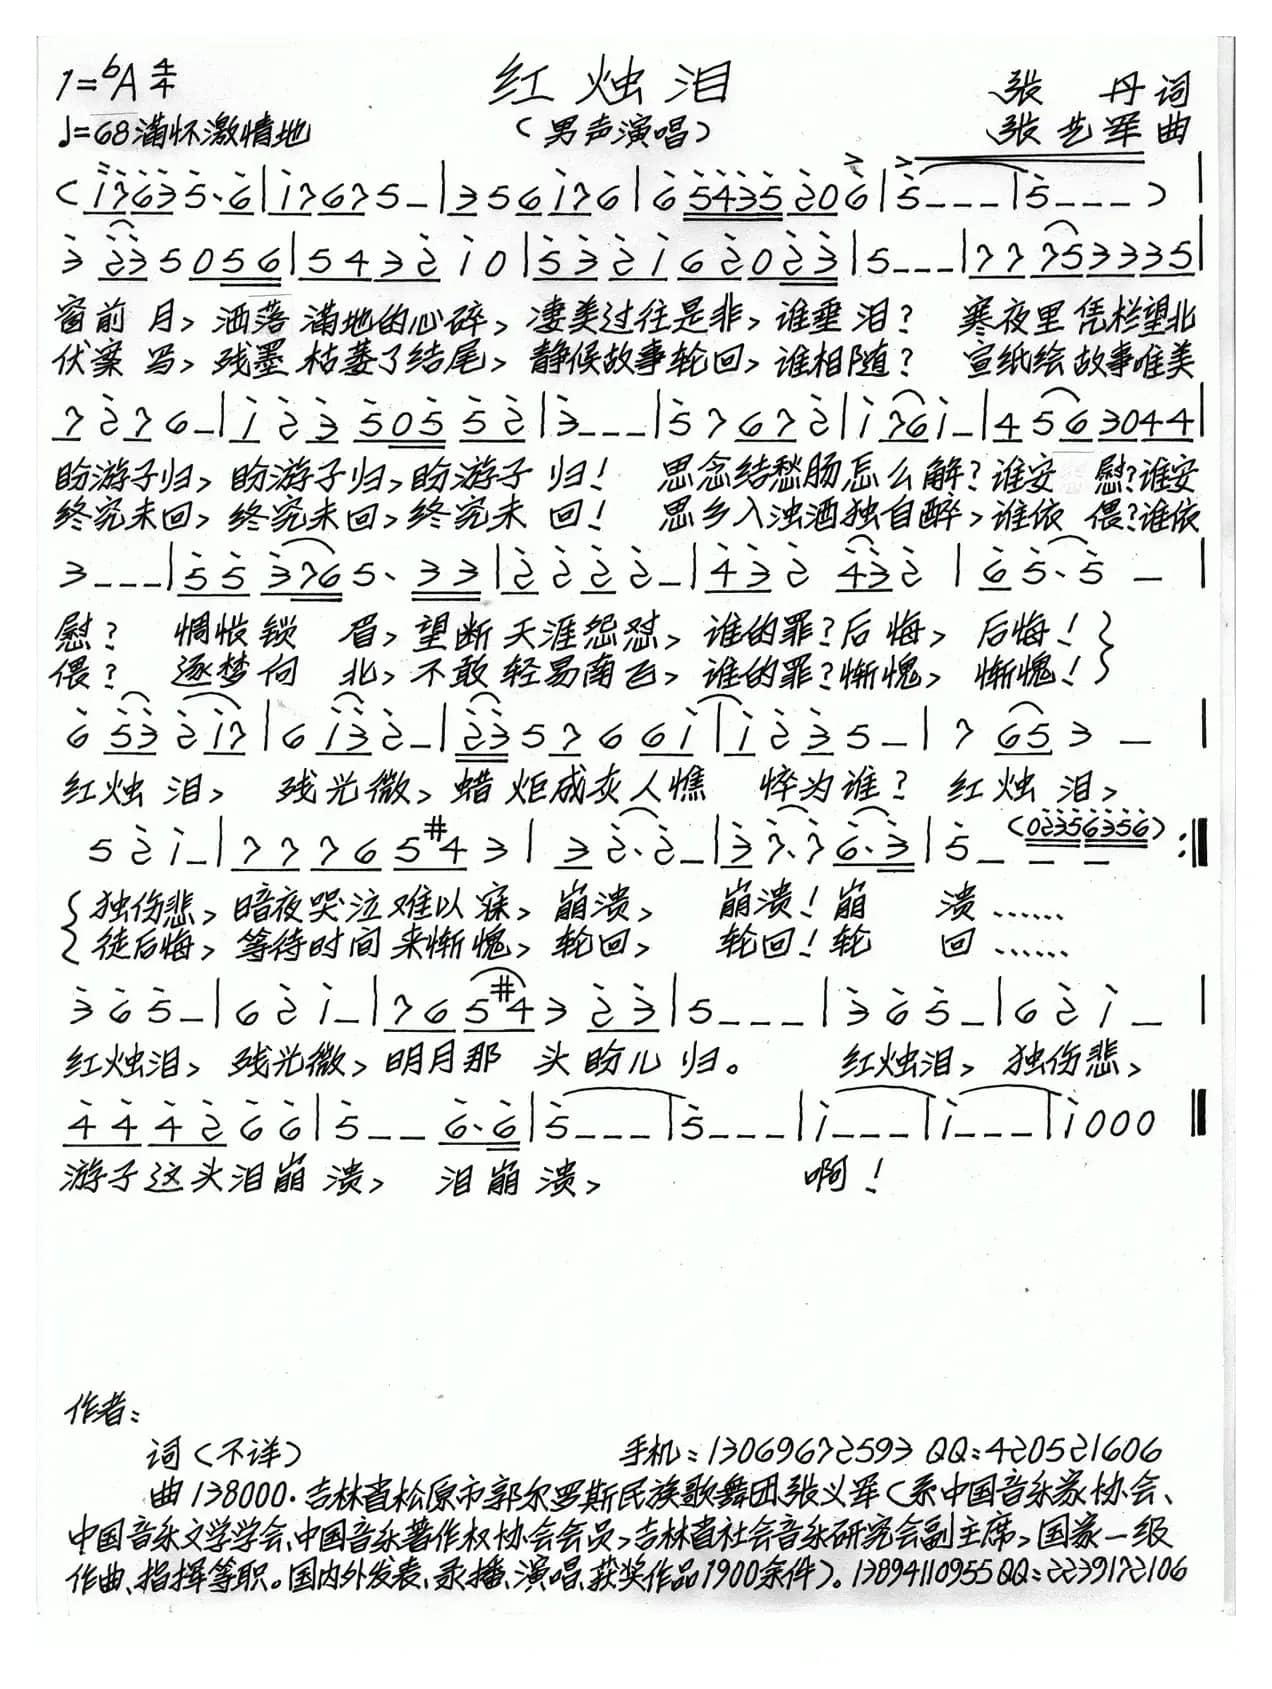 1=♭A 4/4
红烛泪
张 丹 词
♩=68 满怀激情地
（男声演唱）
张艺军 曲
(i7635·6|i7675–|356i76|65435206|5–––|5–––)|
3 2350556|5432i0|532i62023|5–––|77753335|
窗前 月，洒落 满地的心碎，凄美过往是非，谁垂 泪？ 寒夜里 凭栏望北
伏案 写，残墨 枯萎了结尾，静候故事轮回，谁相随？ 宣纸绘 故事唯美
7276–|i2350552|3–––|57672|i76i–|4563044|
盼游子归，盼游子归，盼游子 归！ 思念结愁肠怎么解？谁安 慰？谁安
终究未回，终究未回，终究未 回！ 思乡入浊酒独自醉，谁依 偎？谁依
3–––|553765·33|22222–|432432|65·5–|
慰？ 惆怅锁 眉，望断天涯怨怼，谁的罪？后悔， 后悔！
偎？ 逐梦向 北，不敢轻易南飞，谁的罪？惭愧， 惭愧！
6532i7|6i32–|2357666i|i235–|7653–|
红烛 泪， 残光微，蜡 炬成灰人憔 悴为谁？ 红烛泪，
52i–|77765#43|32·2–|37·76·3|5–––(02356356):‖
独伤悲，暗夜哭泣难以寐，崩溃， 崩溃！崩 溃……
徒后悔，等待时间来惭愧，轮回， 轮回！轮 回……
365–|62i–|765#4323|5–––|365–|62i–|
红烛泪， 残光微，明月那 头盼儿归。 红烛泪， 独伤悲，
444266|5––6·6|5–––|5–––|i–––|i–––|i000‖
游子这头泪崩溃， 泪崩溃， 啊！
作者：
词（不详） 手机：13069672593 QQ：420521606
曲138000·吉林省松原市郭尔罗斯民族歌舞团张义军（系中国音乐家协会、
中国音乐文学学会、中国音乐著作权协会会员，吉林省社会音乐研究会副主席，国家一级
作曲、指挥等职。国内外发表、录播、演唱、获奖作品1900余件）。13894110955 QQ：2239172106